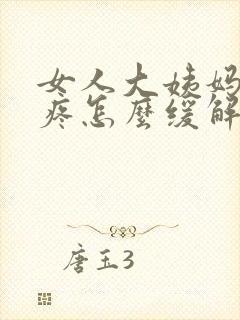 女人大姨妈
疼怎麼缓解
唐玉3